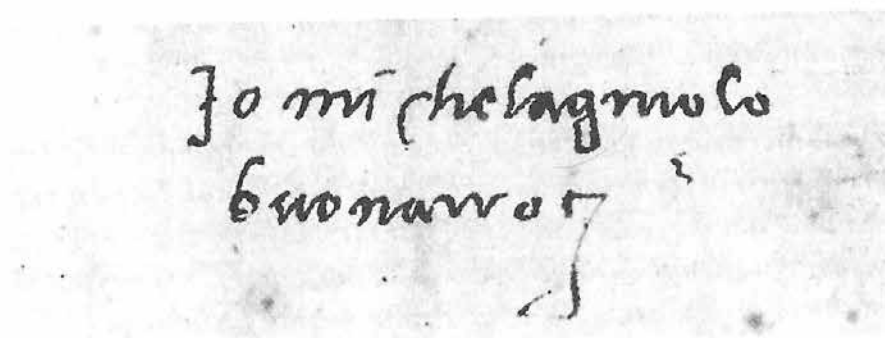 Jo michelagniolo
buonarroti